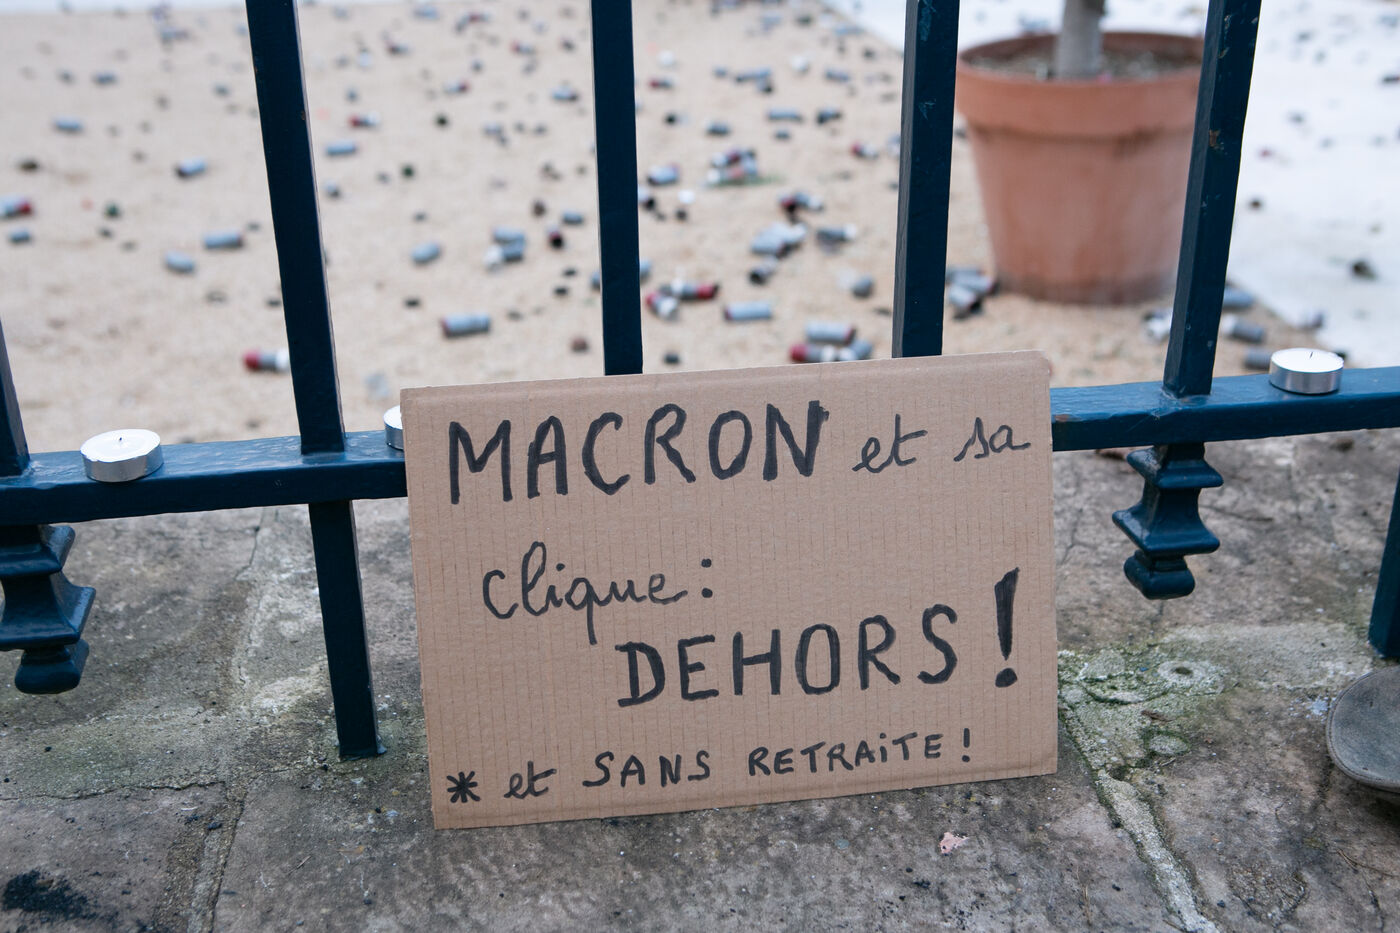 MACRON et sa
clique :
DEHORS !
* et SANS RETRAiTE !